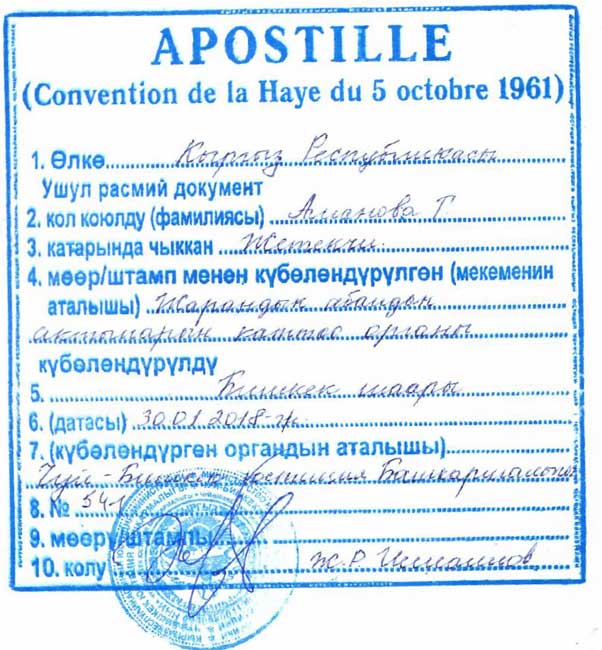 APOSTILLE
(Convention de la Haye du 5 octobre 1961)
1. Өлкө Кыргыз Республикасы
Ушул расмий документ
2. кол коюлду (фамилиясы) Аманова Г
3. катарында чыккан Жетекчи
4. мөөр/штамп менен күбөлөндүрүлгөн (мекеменин
аталышы) Жарандык абалдын
актыларын каттоо органы
күбөлөндүрүлдү
5. Бишкек шаары
6. (датасы) 30.01.2018-ж.
7. (күбөлөндүргөн органдын аталышы)
Чүй-Бишкек юстиция Башкармалыгы
8. №
9. мөөрү/штампы
10. колу Ж.Р. Исмаилов